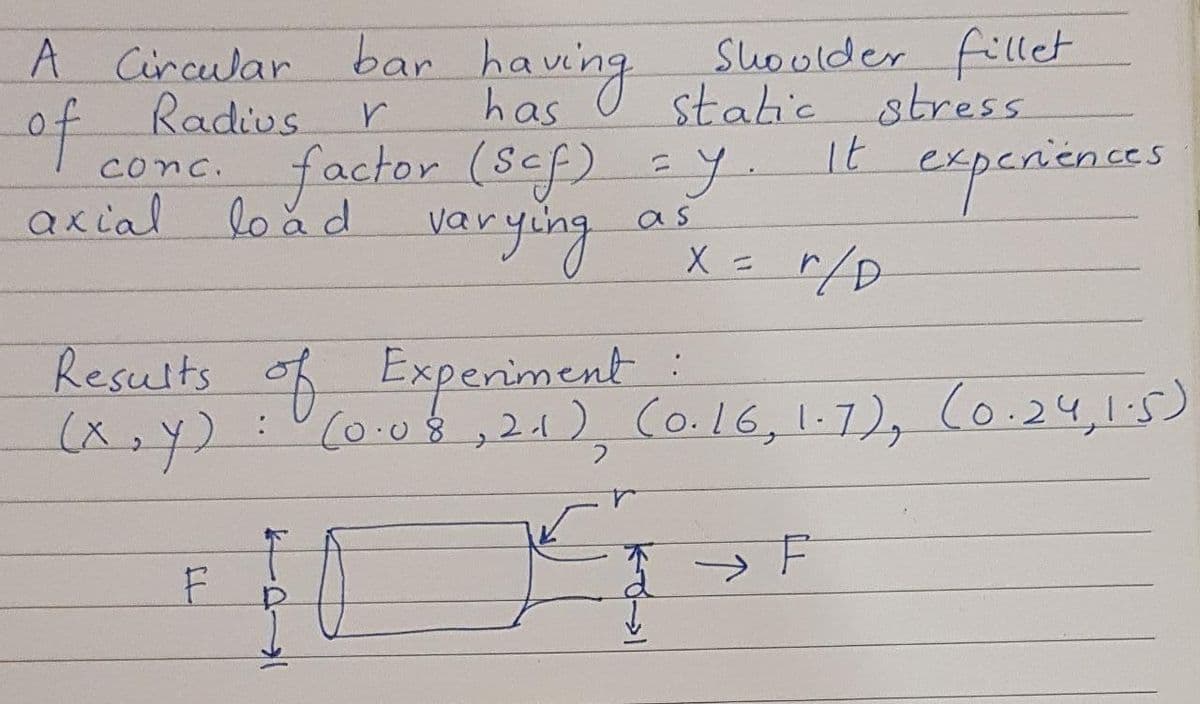 A Circular bar having Shoulder fillet
of Radius r has static stress
conc. factor (scf) = y. It experiences
axial load varying as
x = r/D
Results of Experiment :
(x, y) : (0.08, 2.1), (0.16, 1.7), (0.24, 1.5)
r
F D d → F